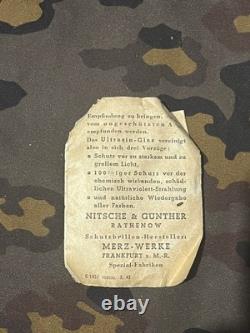 Empfindung zu bringen,
vom ungeschützten A
empfunden werden.
Das Ultrasin-Glas vereinigt
also in sich drei Vorzüge:
Schutz vor zu starkem und zu
grellem Licht,
100%iger Schutz vor der
chemisch wirkenden, schäd-
lichen Ultraviolett-Strahlung
und natürliche Wiedergabe
aller Farben.
NITSCHE & GÜNTHER
RATHENOW
Schutzbrillen-Hersteller:
MERZ-WERKE
FRANKFURT a. M.-R.
Spezial-Fabriken